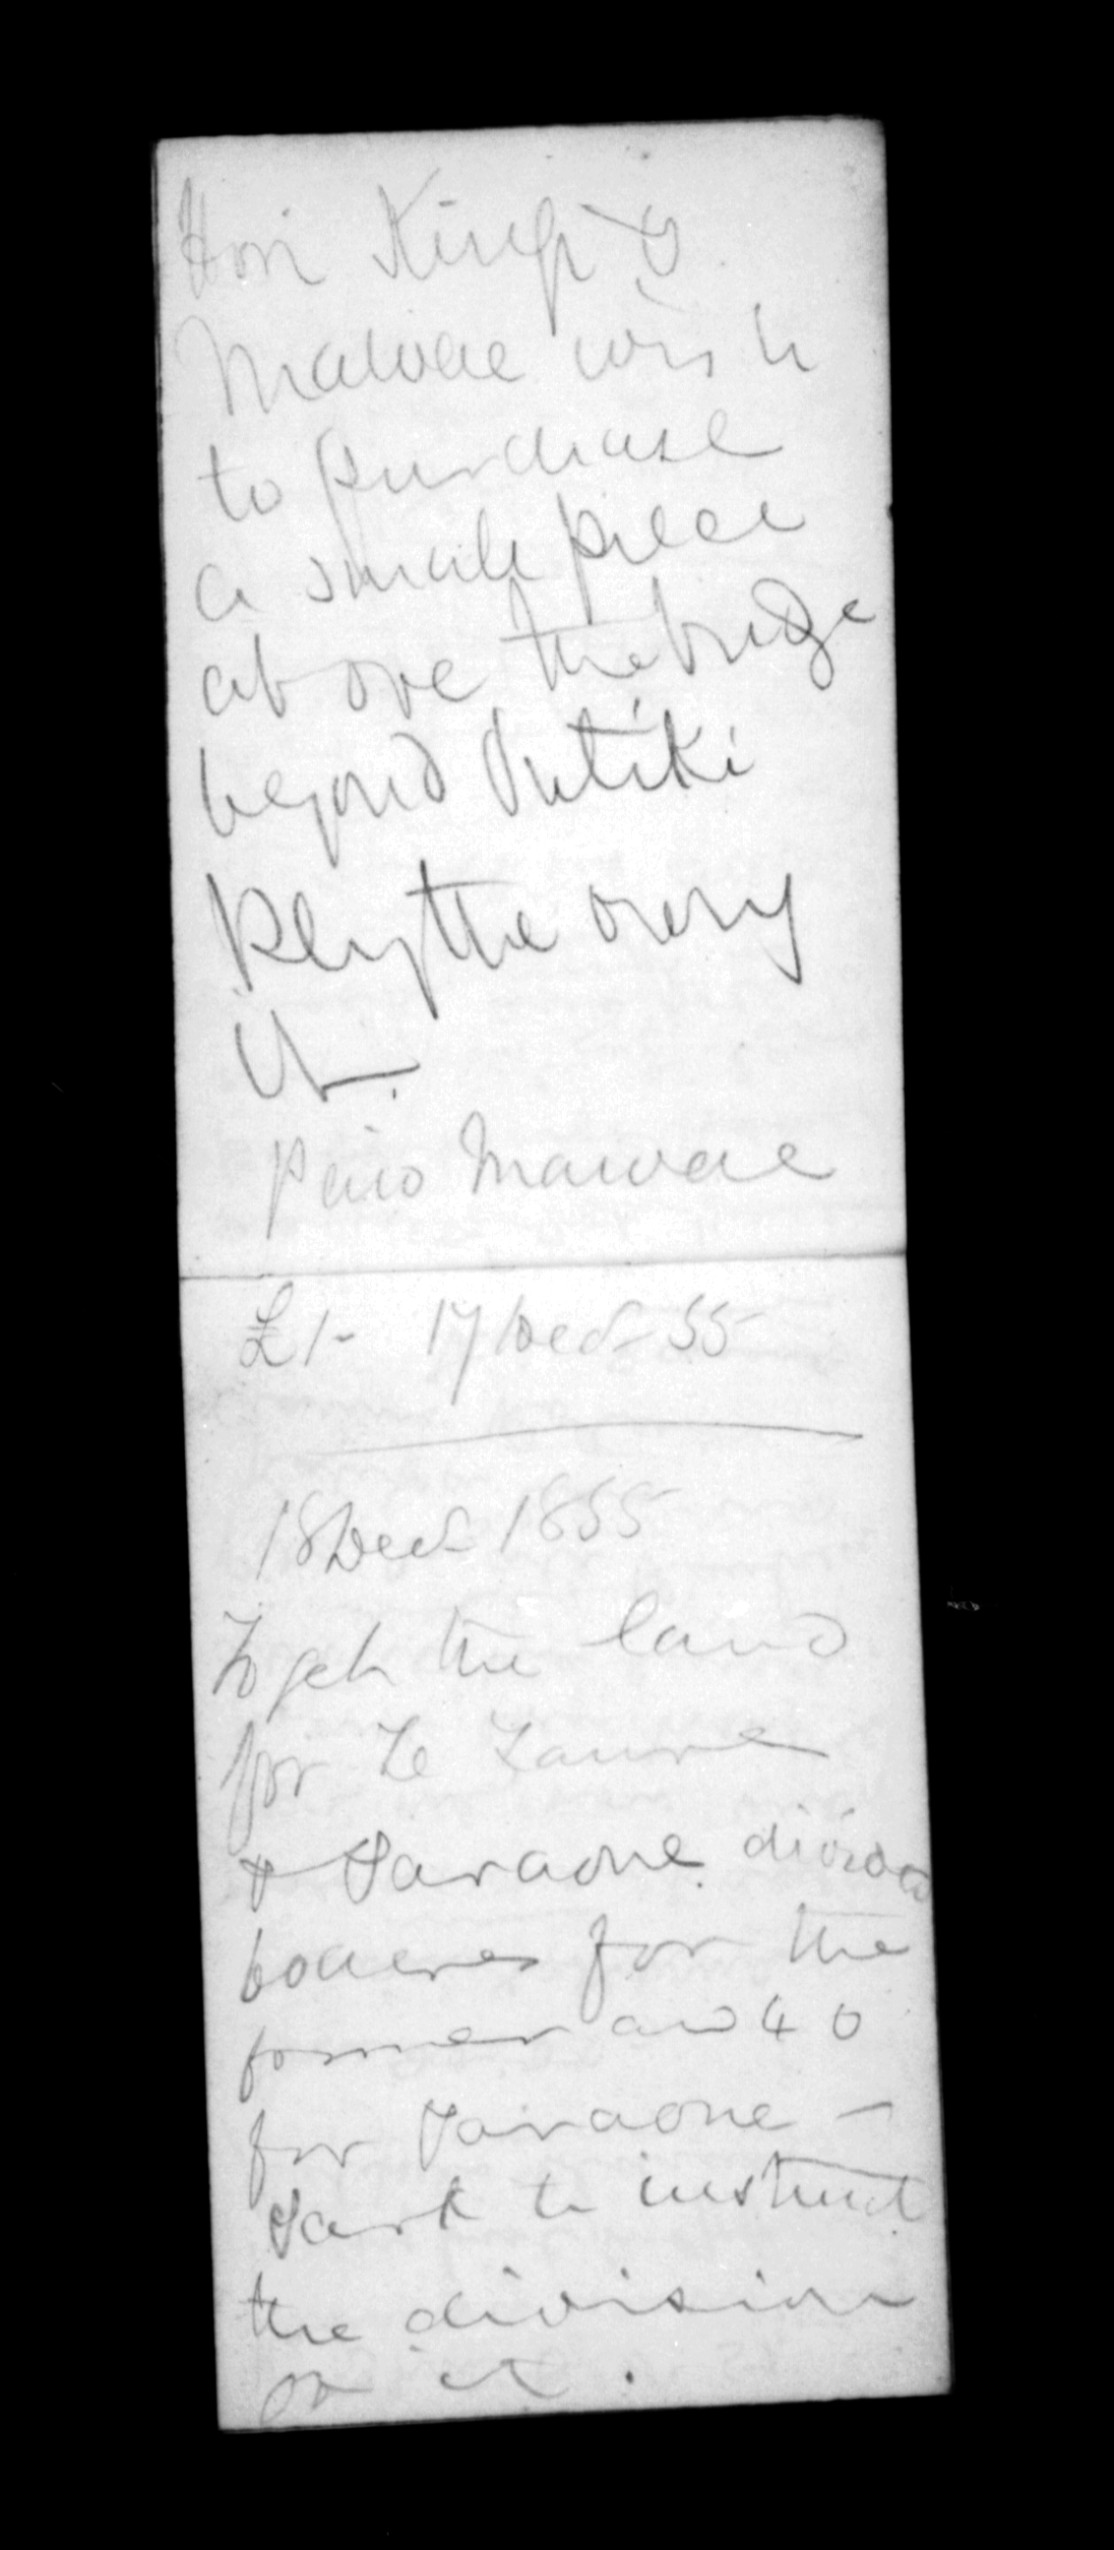 Hori Kingi &
Mawae wish
to purchase
a small piece
above the bridge
beyond Putiki
Rly the
it.
Paid Mawae
£1- 17 Dec 55
18 Dec 1855
To get the land
for Te Taure
& Paraone divided
60 acres for the
former and 40
for Paraone -
Park to instruct
the division
of it.